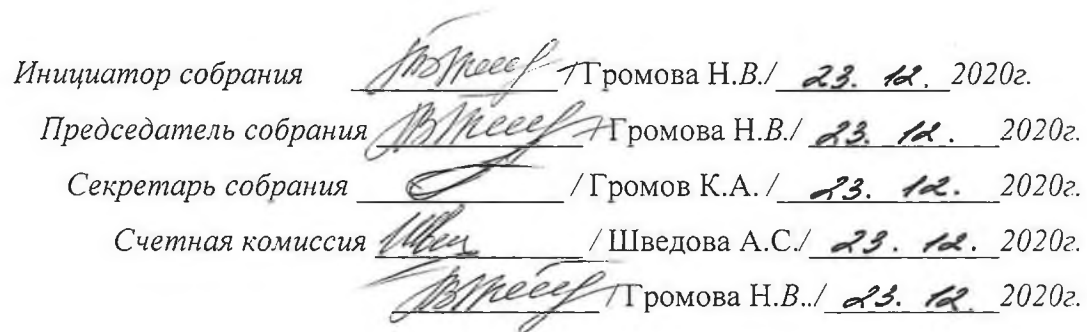 Инициатор собрания /Громова Н.В./ 23. 12. 2020г.
Председатель собрания /Громова Н.В./ 23. 12. 2020г.
Секретарь собрания / Громов К.А. / 23. 12. 2020г.
Счетная комиссия Швед / Шведова А.С./ 23. 12. 2020г.
/Громова Н.В../ 23. 12 2020г.